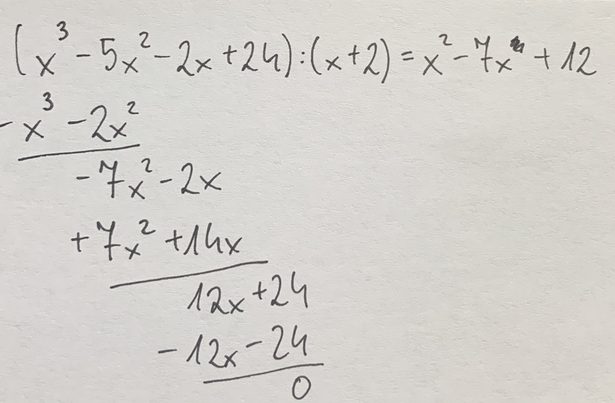 (x³ - 5x² - 2x + 24) : (x + 2) = x² - 7x + 12
- x³ - 2x²
- 7x² - 2x
+ 7x² + 14x
12x + 24
- 12x - 24
0